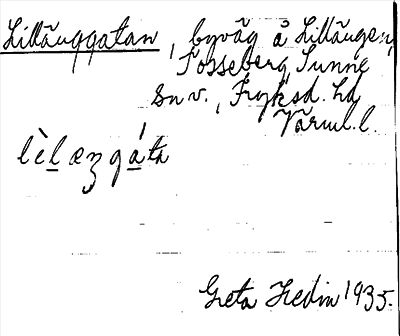 Lillängqatan, byväg å Lillängen,
Fosseberg, Sunne
sn v., Fryksd. hd
Värml. l.
lèlæŋgáta
Greta Hedin 1935.